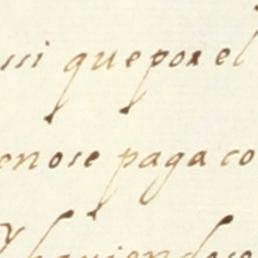 ssi que por el
enose paga co
y haviendose